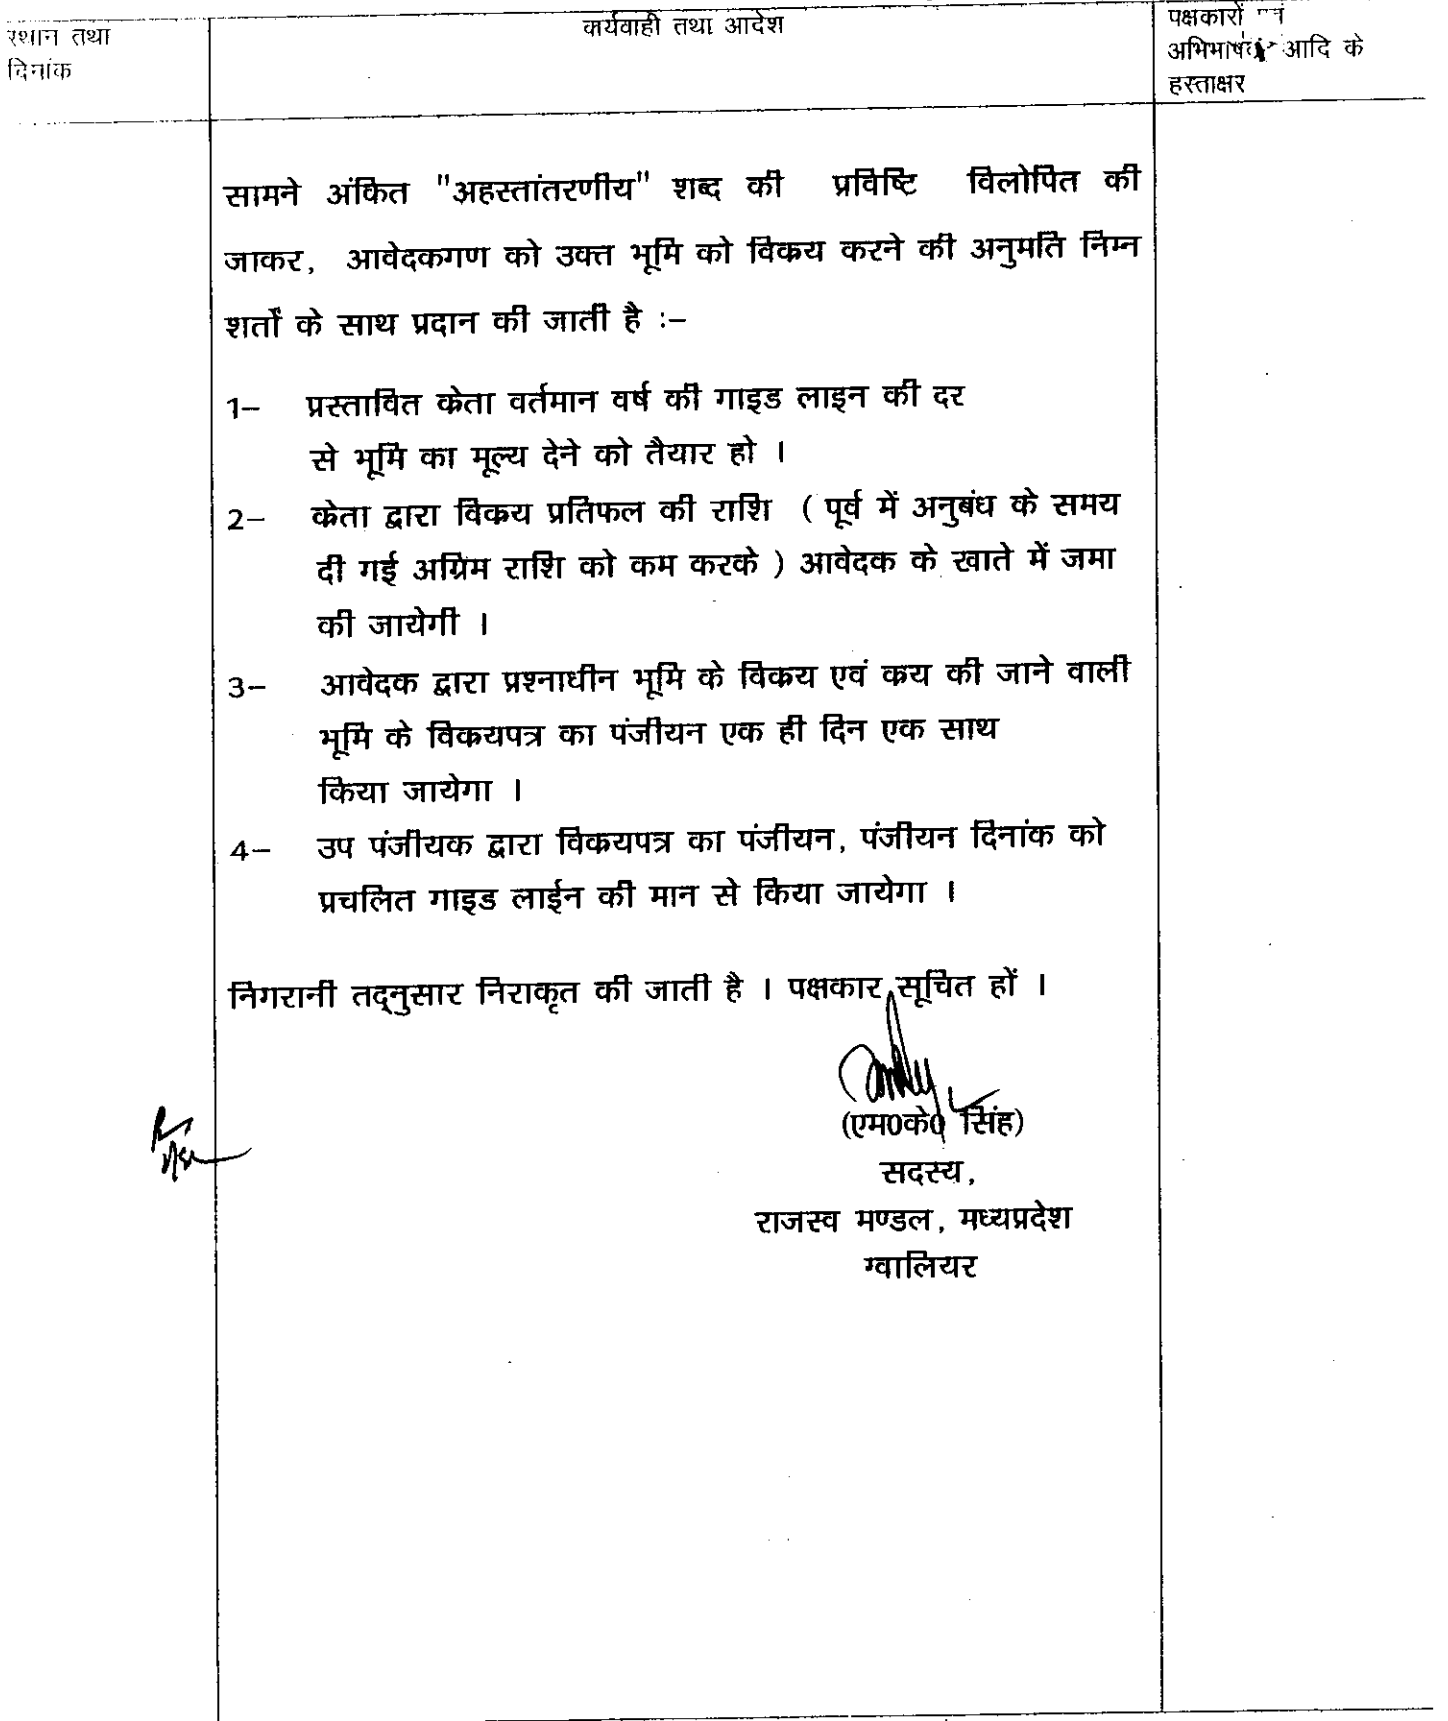 स्थान तथा
दिनांक
कार्यवाही तथा आदेश
पक्षकारों एवं
अभिभाषकों आदि के
हस्ताक्षर
सामने अंकित "अहस्तांतरणीय" शब्द की प्रविष्टि विलोपित की
जाकर, आवेदकगण को उक्त भूमि को विकय करने की अनुमति निम्न
शर्तों के साथ प्रदान की जाती है :–
1– प्रस्तावित केता वर्तमान वर्ष की गाइड लाइन की दर
से भूमि का मूल्य देने को तैयार हो ।
2– केता द्वारा विकय प्रतिफल की राशि ( पूर्व में अनुबंध के समय
दी गई अग्रिम राशि को कम करके ) आवेदक के खाते में जमा
की जायेगी ।
3– आवेदक द्वारा प्रश्नाधीन भूमि के विकय एवं कय की जाने वाली
भूमि के विकयपत्र का पंजीयन एक ही दिन एक साथ
किया जायेगा ।
4– उप पंजीयक द्वारा विकयपत्र का पंजीयन, पंजीयन दिनांक को
प्रचलित गाइड लाईन की मान से किया जायेगा ।
निगरानी तद्नुसार निराकृत की जाती है । पक्षकार सूचित हों ।
(एम0के0 सिंह)
सदस्य,
राजस्व मण्डल, मध्यप्रदेश
ग्वालियर